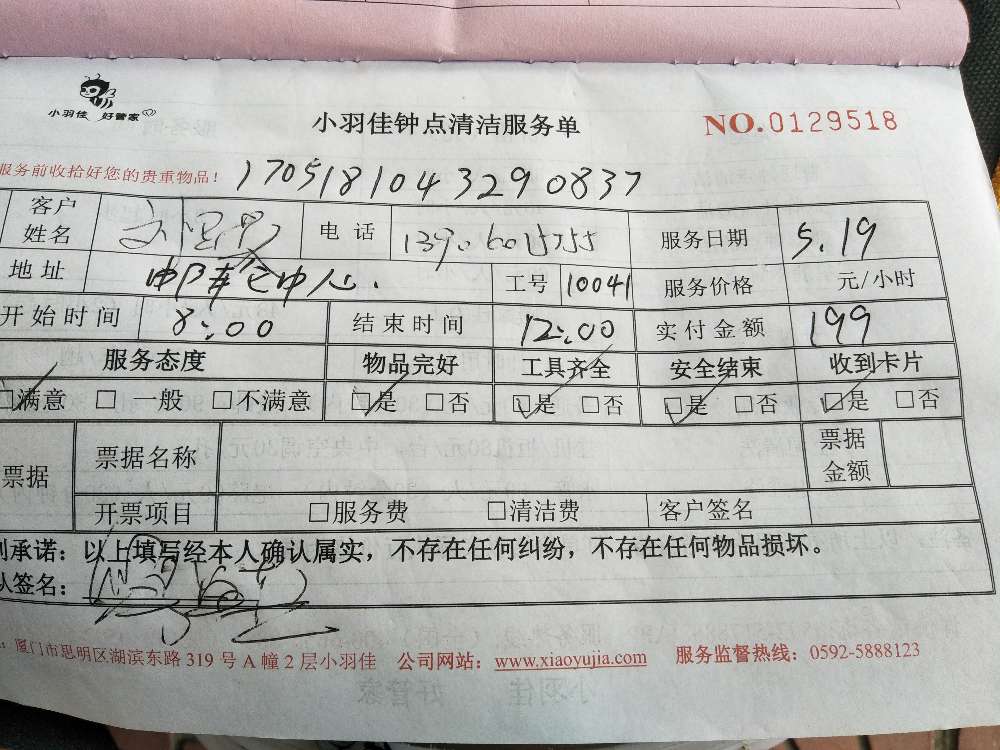 小羽佳 好管家
小羽佳钟点清洁服务单
NO.0129518
服务前收拾好您的贵重物品！ 1705181043290837
客户姓名 电话 服务日期 5.19
地址 中心. 工号 10041 服务价格 元/小时
开始时间 8:00 结束时间 12:00 实付金额 199
服务态度 物品完好 工具齐全 安全结束 收到卡片
□满意 □一般 □不满意 □是 □否 □是 □否 □是 □否 □是 □否
票据 票据名称 票据金额
开票项目 □服务费 □清洁费 客户签名
承诺：以上填写经本人确认属实，不存在任何纠纷，不存在任何物品损坏。
签名：
厦门市思明区湖滨东路319号A幢2层小羽佳 公司网站：www.xiaoyujia.com 服务监督热线：0592-5888123